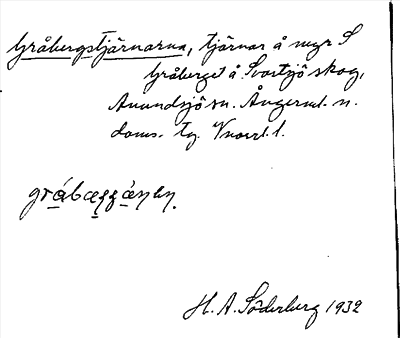 Gråbergstjärnarna, tjärnar å myr S
Gråberget å Svartsjö skog,
Anundsjö sn. Ångerml. n.
doms. tg. Vnorrl. l.
H. A. Söderberg 1932